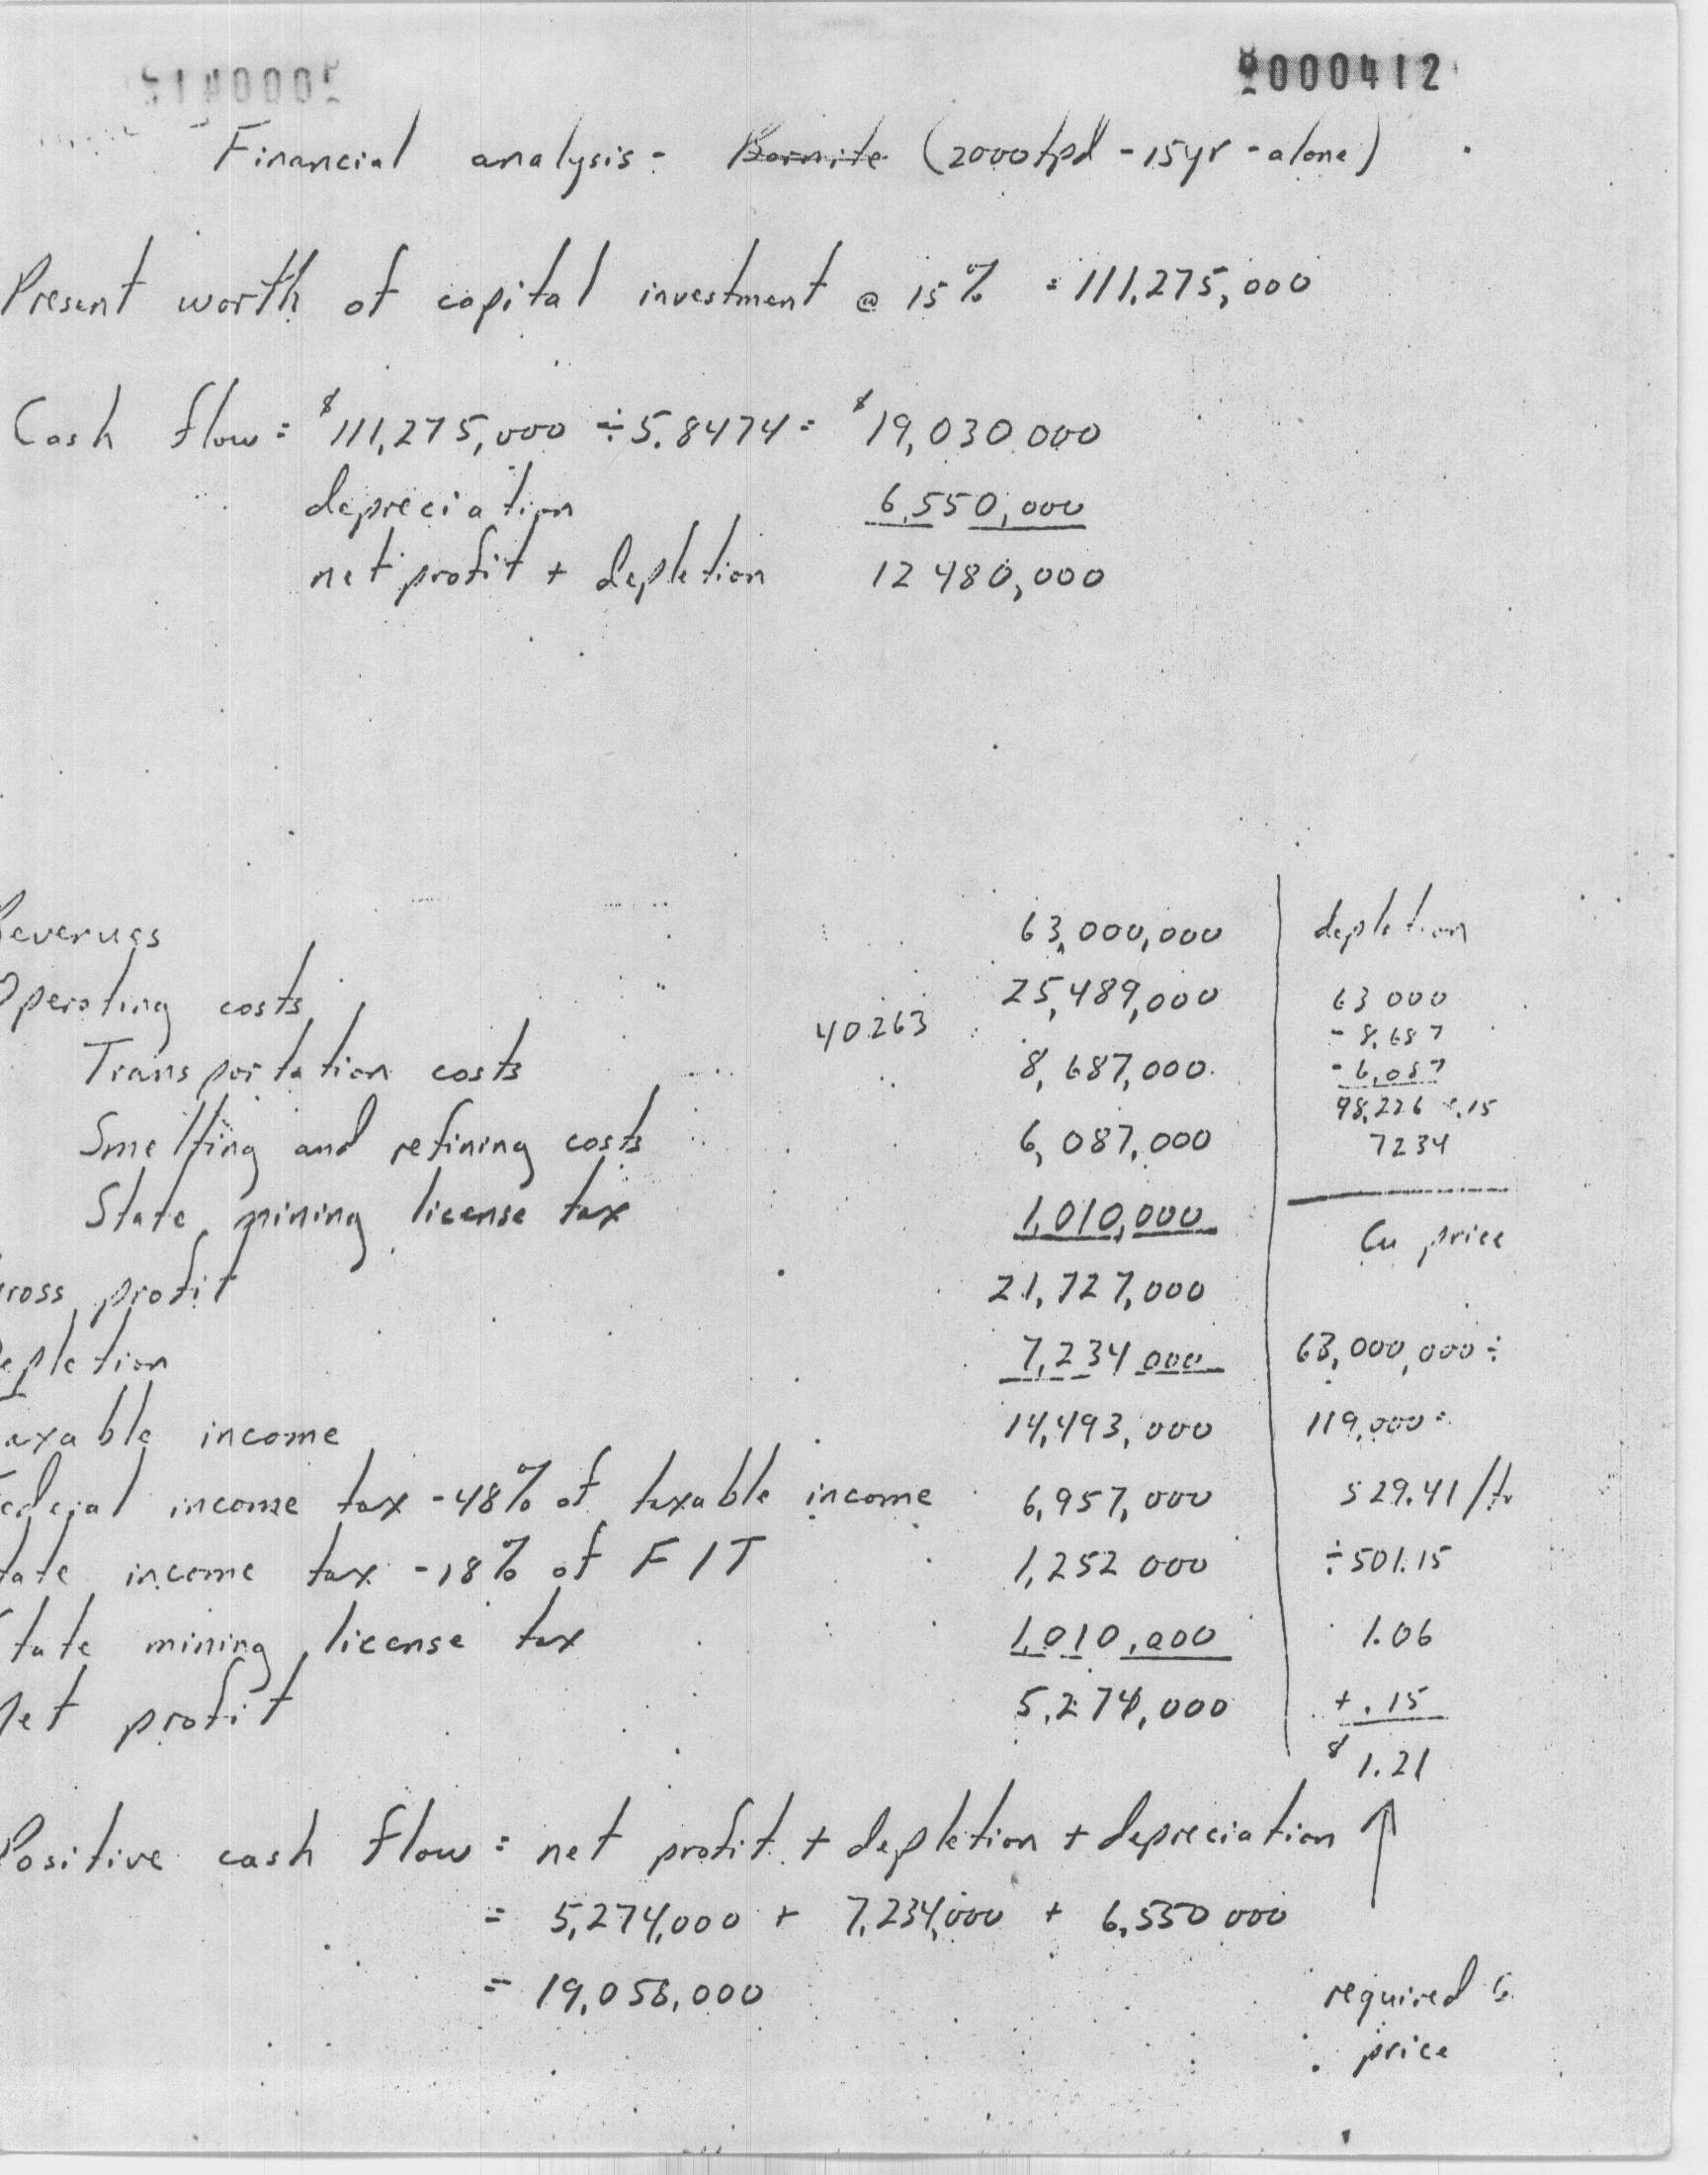 8000412
Financial analysis - Bornite (2000tpd - 15yr - alone)
Present worth of capital investment @ 15% = 111,275,000
Cash flow = $111,275,000 ÷ 5.8474 = $19,030,000
depreciation 6,550,000
net profit + depletion 12 480,000
Revenues 63,000,000
Operating costs 25,489,000
40263
Transportation costs 8,687,000
Smelting and refining costs 6,087,000
State mining license tax 1,010,000
ross profit 21,727,000
epletion 7,234 000
axable income 14,493,000
ederal income tax - 48% of taxable income 6,957,000
tate income tax - 18% of FIT 1,252 000
tate mining license tax 1,010,000
Net profit 5,274,000
depletion
63 000
- 8,687
- 6,087
48,226 x .15
7234
Cu price
63,000,000 ÷
119,000 =
529.41 /tr
÷ 501.15
1.06
+ .15
$ 1.21
Positive cash flow = net profit + depletion + depreciation
= 5,274,000 + 7,234,000 + 6,550 000
= 19,058,000
required
price